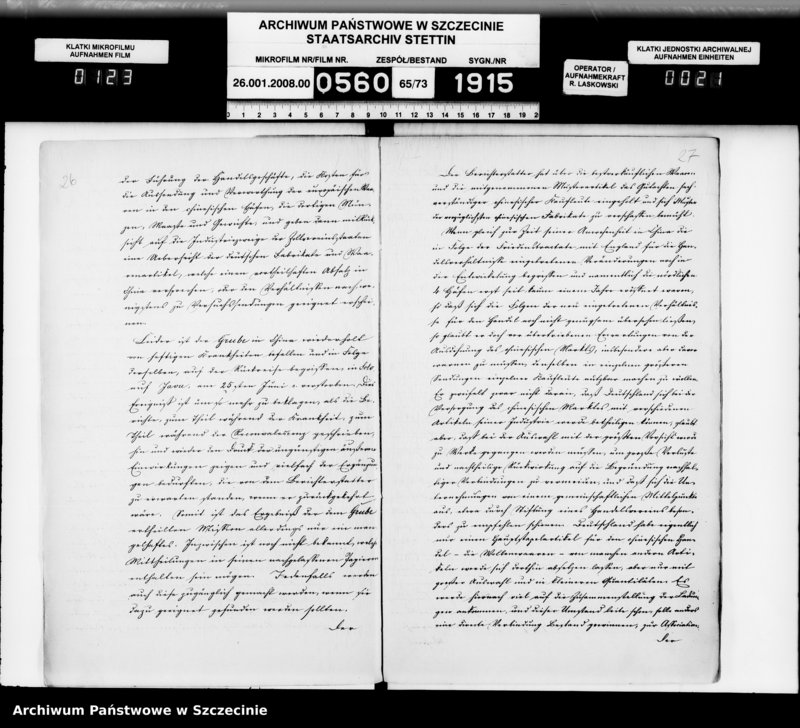 ARCHIWUM PAŃSTWOWE W SZCZECINIE
STAATSARCHIV STETTIN
KLATKI MIKROFILMU
AUFNAHMEN FILM
0123
MIKROFILM NR/FILM NR. ZESPÓŁ/BESTAND SYGN./NR
26.001.2008.00 0560 65/73 1915
OPERATOR /
AUFNAHMEKRAFT
R. LASKOWSKI
KLATKI JEDNOSTKI ARCHIWALNEJ
AUFNAHMEN EINHEITEN
0021
0 1 2 3 4 5 6 7 8 9 10 11 12 13 14 15 16 17 18 19 2
26
der Führung der Handelsgeschäfte, die Kosten für
die Ausladung und Verwerthung der europäischen Waa-
ren in den chinesischen Häfen, die dortigen Mün-
zen, Maaße und Gewichte, und geben dann mit Rück-
sicht auf die Industriezweige der Zollvereinsstaaten
eine Uebersicht der deutschen Fabrikate und Waa-
renartikel, welche einen vortheilhaften Absatz in
China versprechen, oder den Verhältnissen nach we-
nigstens zu Versuchssendungen geeignet erschei-
nen.
Leider ist der Grube in China wiederholt
von heftigen Krankheiten befallen und in Folge
derselben, auf der Rückreise begriffen, in
auf Java am 25sten Juni verstorben. Dies
Ereigniß ist um so mehr zu beklagen, als die Be-
richte, zum Theil während der Krankheit, zum
Theil während der Reconvalescenz geschrieben,
hin und wieder den Druck der ungünstigen äußeren
Einwirkungen zeigen und vielfach der Ergänzun-
gen bedurften, die von dem Berichterstatter
zu erwarten standen, wenn er zurückgekehrt
wäre. Somit ist das Ergebniß der dem Grube
ertheilten Mission allerdings nur ein man-
gelhaftes. Inzwischen ist noch nicht bekannt, welche
Mittheilungen in seinen nachgelassenen Papieren
enthalten sein mögen. Jedenfalls werden
auch diese zugänglich gemacht werden, wenn sie
dazu geeignet gefunden werden sollten.
Der
27
Der Berichterstatter hat über die Waaren
und die mitgenommenen Musterartikel das Gutachten sach-
verständiger chinesischer Kaufleute eingeholt und sich Muster
der chinesischen Fabrikate zu verschaffen bemüht.
Wenn gleich zur Zeit seiner Anwesenheit in China die
in Folge des Friedenstractats mit England für die Han-
delsverhältnisse eingetretenen Veränderungen noch in
der Entwickelung begriffen und namentlich die nördlichen
4 Häfen erst seit kaum einem Jahre eröffnet waren,
so daß sich die Folgen der neu eingetretenen Verhältnis-
se für den Handel noch nicht genugsam übersehen ließen,
so glaubt er doch vor übertriebenen Erwartungen von der
Ausdehnung des chinesischen Markts, insbesondere aber davor
warnen zu müssen, denselben in einzelnen größeren
Sendungen einzelner Kaufleute nutzbar machen zu wollen.
Er zweifelt zwar nicht daran, daß Deutschland sich bei der
Versorgung des chinesischen Marktes mit verschiedenen
Artikeln seiner Industrie werde betheiligen können, glaubt
aber, daß bei der Auswahl mit der größten Vorsicht werde
zu Werke gegangen werden müssen, um große Verluste
und nachtheilige Rückwirkung auf die Begründung nachhal-
tiger Verbindungen zu vermeiden, und daß sich die Un-
ternehmungen von einem gemeinschaftlichen Mittelpunkte
aus, etwa durch Stiftung eines Handelsvereins beson-
ders zu empfehlen scheinen. Deutschland habe eigentlich
nur einen Hauptstapelartikel für den chinesischen Han-
del – die Wollenwaaren – von manchen andern Arti-
keln werde sich dorthin absetzen lassen, aber nur mit
großer Auswahl und in kleineren Quantitäten. Es
werde hiernach viel auf die Zusammenstellung der Ladun-
gen ankommen, und dieser Umstand leite schon, solle anders
eine directe Verbindung Bestand gewinnen, zur Association.
Der
Archiwum Państwowe w Szczecinie